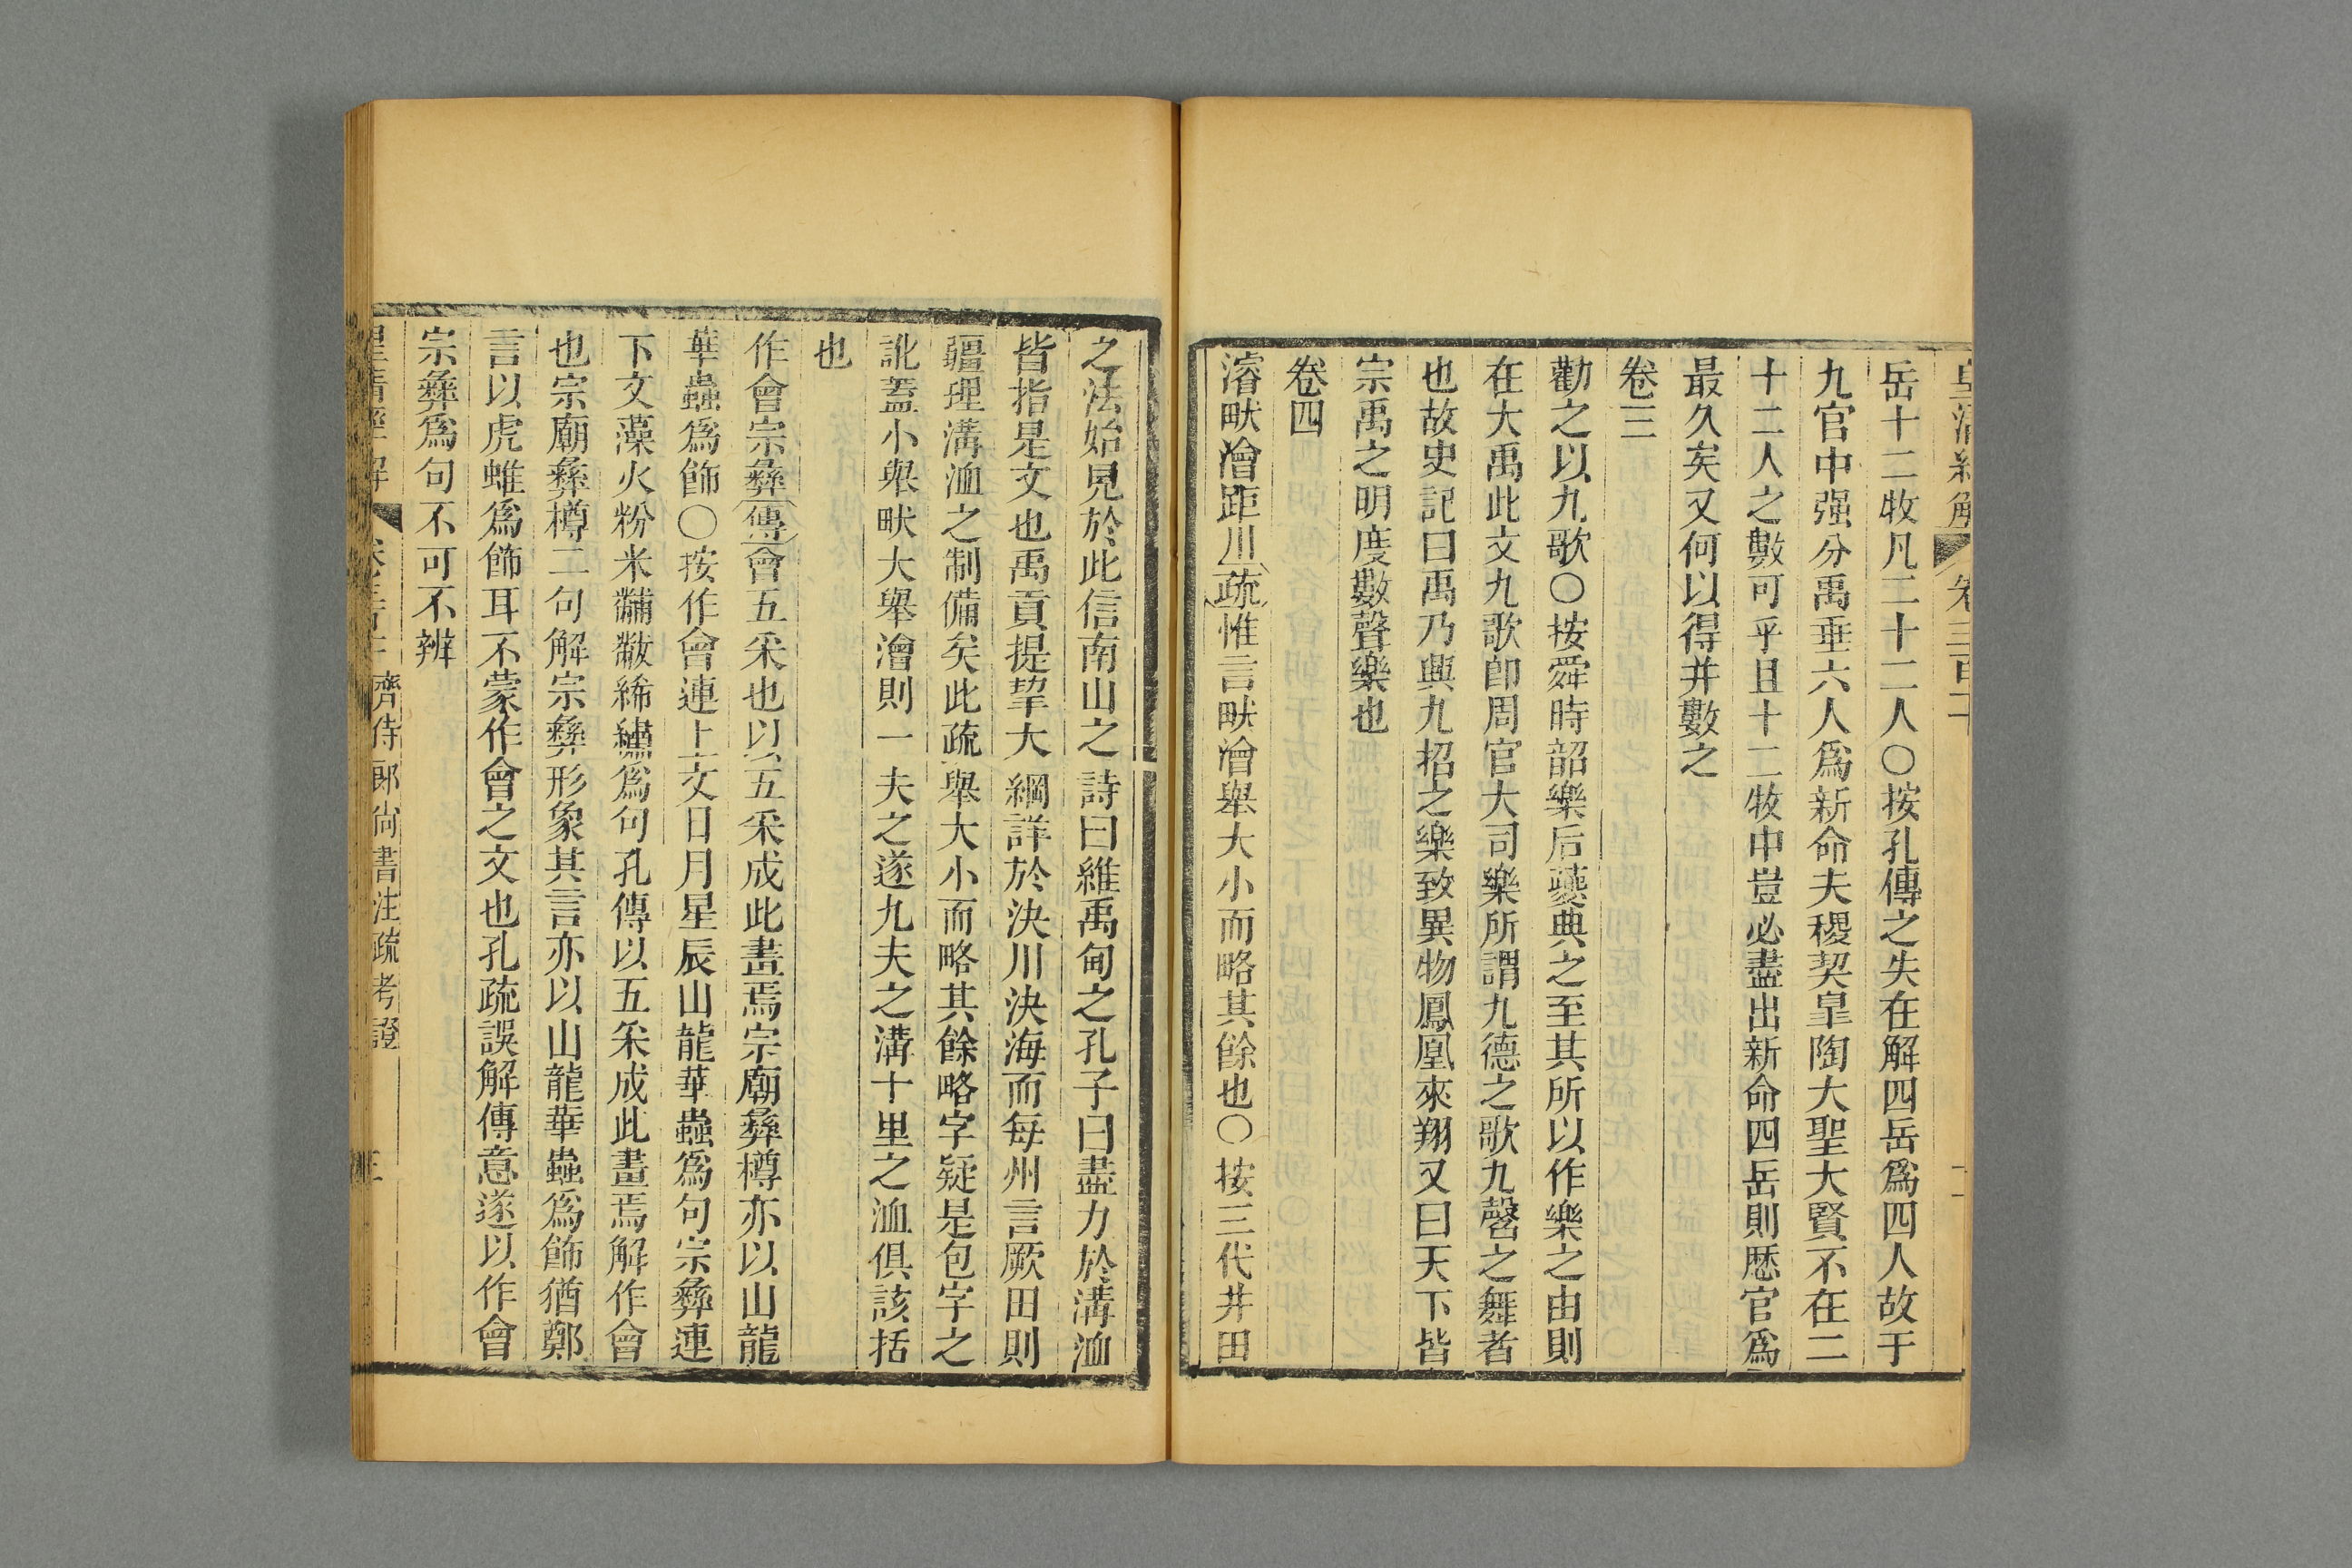 岳十二牧凡二十二人〇按孔傳之失在解四岳爲四人故于
九官中强分禹垂六人爲新命夫稷契皐陶大聖大賢不在二
十二人之數可乎且十二牧中豈必盡出新命四岳則歷官爲
最久矣又何以得并數之
卷三
勸之以九歌〇按舜時韶樂后夔典之至其所以作樂之由則
在大禹此文九歌卽周官大司樂所謂九德之歌九磬之舞者
也故史記曰禹乃興九招之樂致異物鳳凰來翔又曰天下皆
宗禹之明度數聲樂也
卷四
濬畎澮距川疏惟言畎澮舉大小而略其餘也〇按三代井田
之法始見於此信南山之詩曰維禹甸之孔子曰盡力於溝洫
皆指是文也禹貢提挈大綱詳於決川決海而每州言厥田則
疆理溝洫之制備矣此疏舉大小而略其餘略字疑是包字之
訛蓋小舉畎大舉澮則一夫之遂九夫之溝十里之洫俱該括
也
作會宗彝傳會五采也以五采成此畫焉宗廟彝樽亦以山龍
華蟲爲飾〇按作會連上文日月星辰山龍華蟲爲句宗彝連
下文藻火粉米黼黻絺繡爲句孔傳以五采成此畫焉解作會
也宗廟彝樽二句解宗彝形象其言亦以山龍華蟲爲飾猶鄭
言以虎蜼爲飾耳不蒙作會之文也孔疏誤解傳意遂以作會
宗彝爲句不可不辨
齊侍郎尚書注疏考證